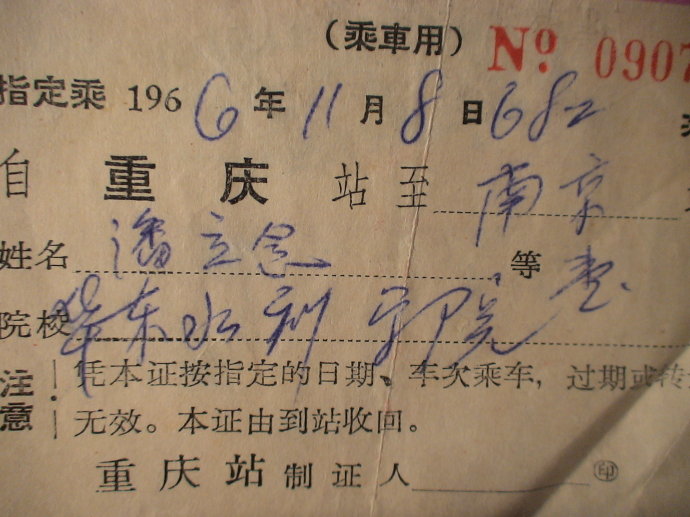 （乘車用） No. 0907
指定乘 1966年11月8日 682
自 重庆 站至 南京
姓名 潘立念 等 壹
院校 华东水利学院
注意 凭本证按指定的日期、车次乘车，过期或转
无效。本证由到站收回。
重庆站 制证人 印